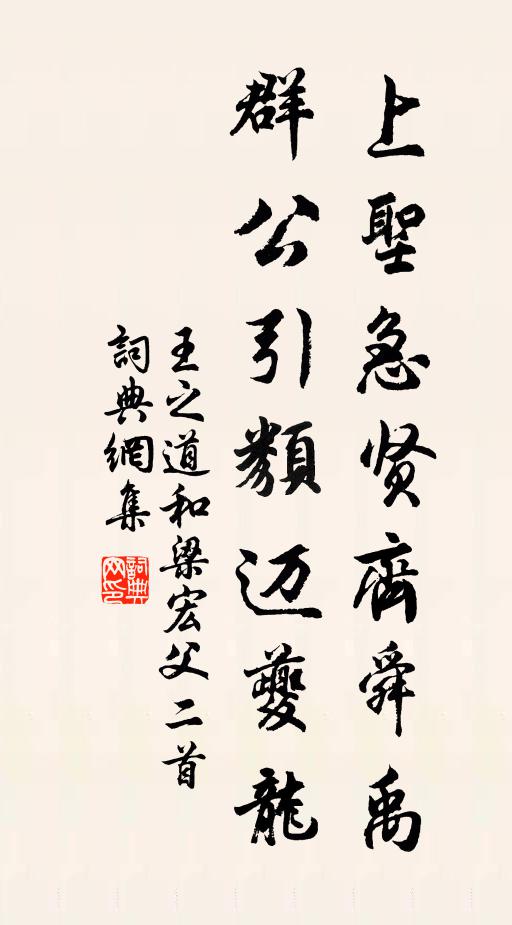 上聖急贤齊舜禹
群公引類迈夔龍
王之道和梁宏父二首
詞典網集
詞典网印